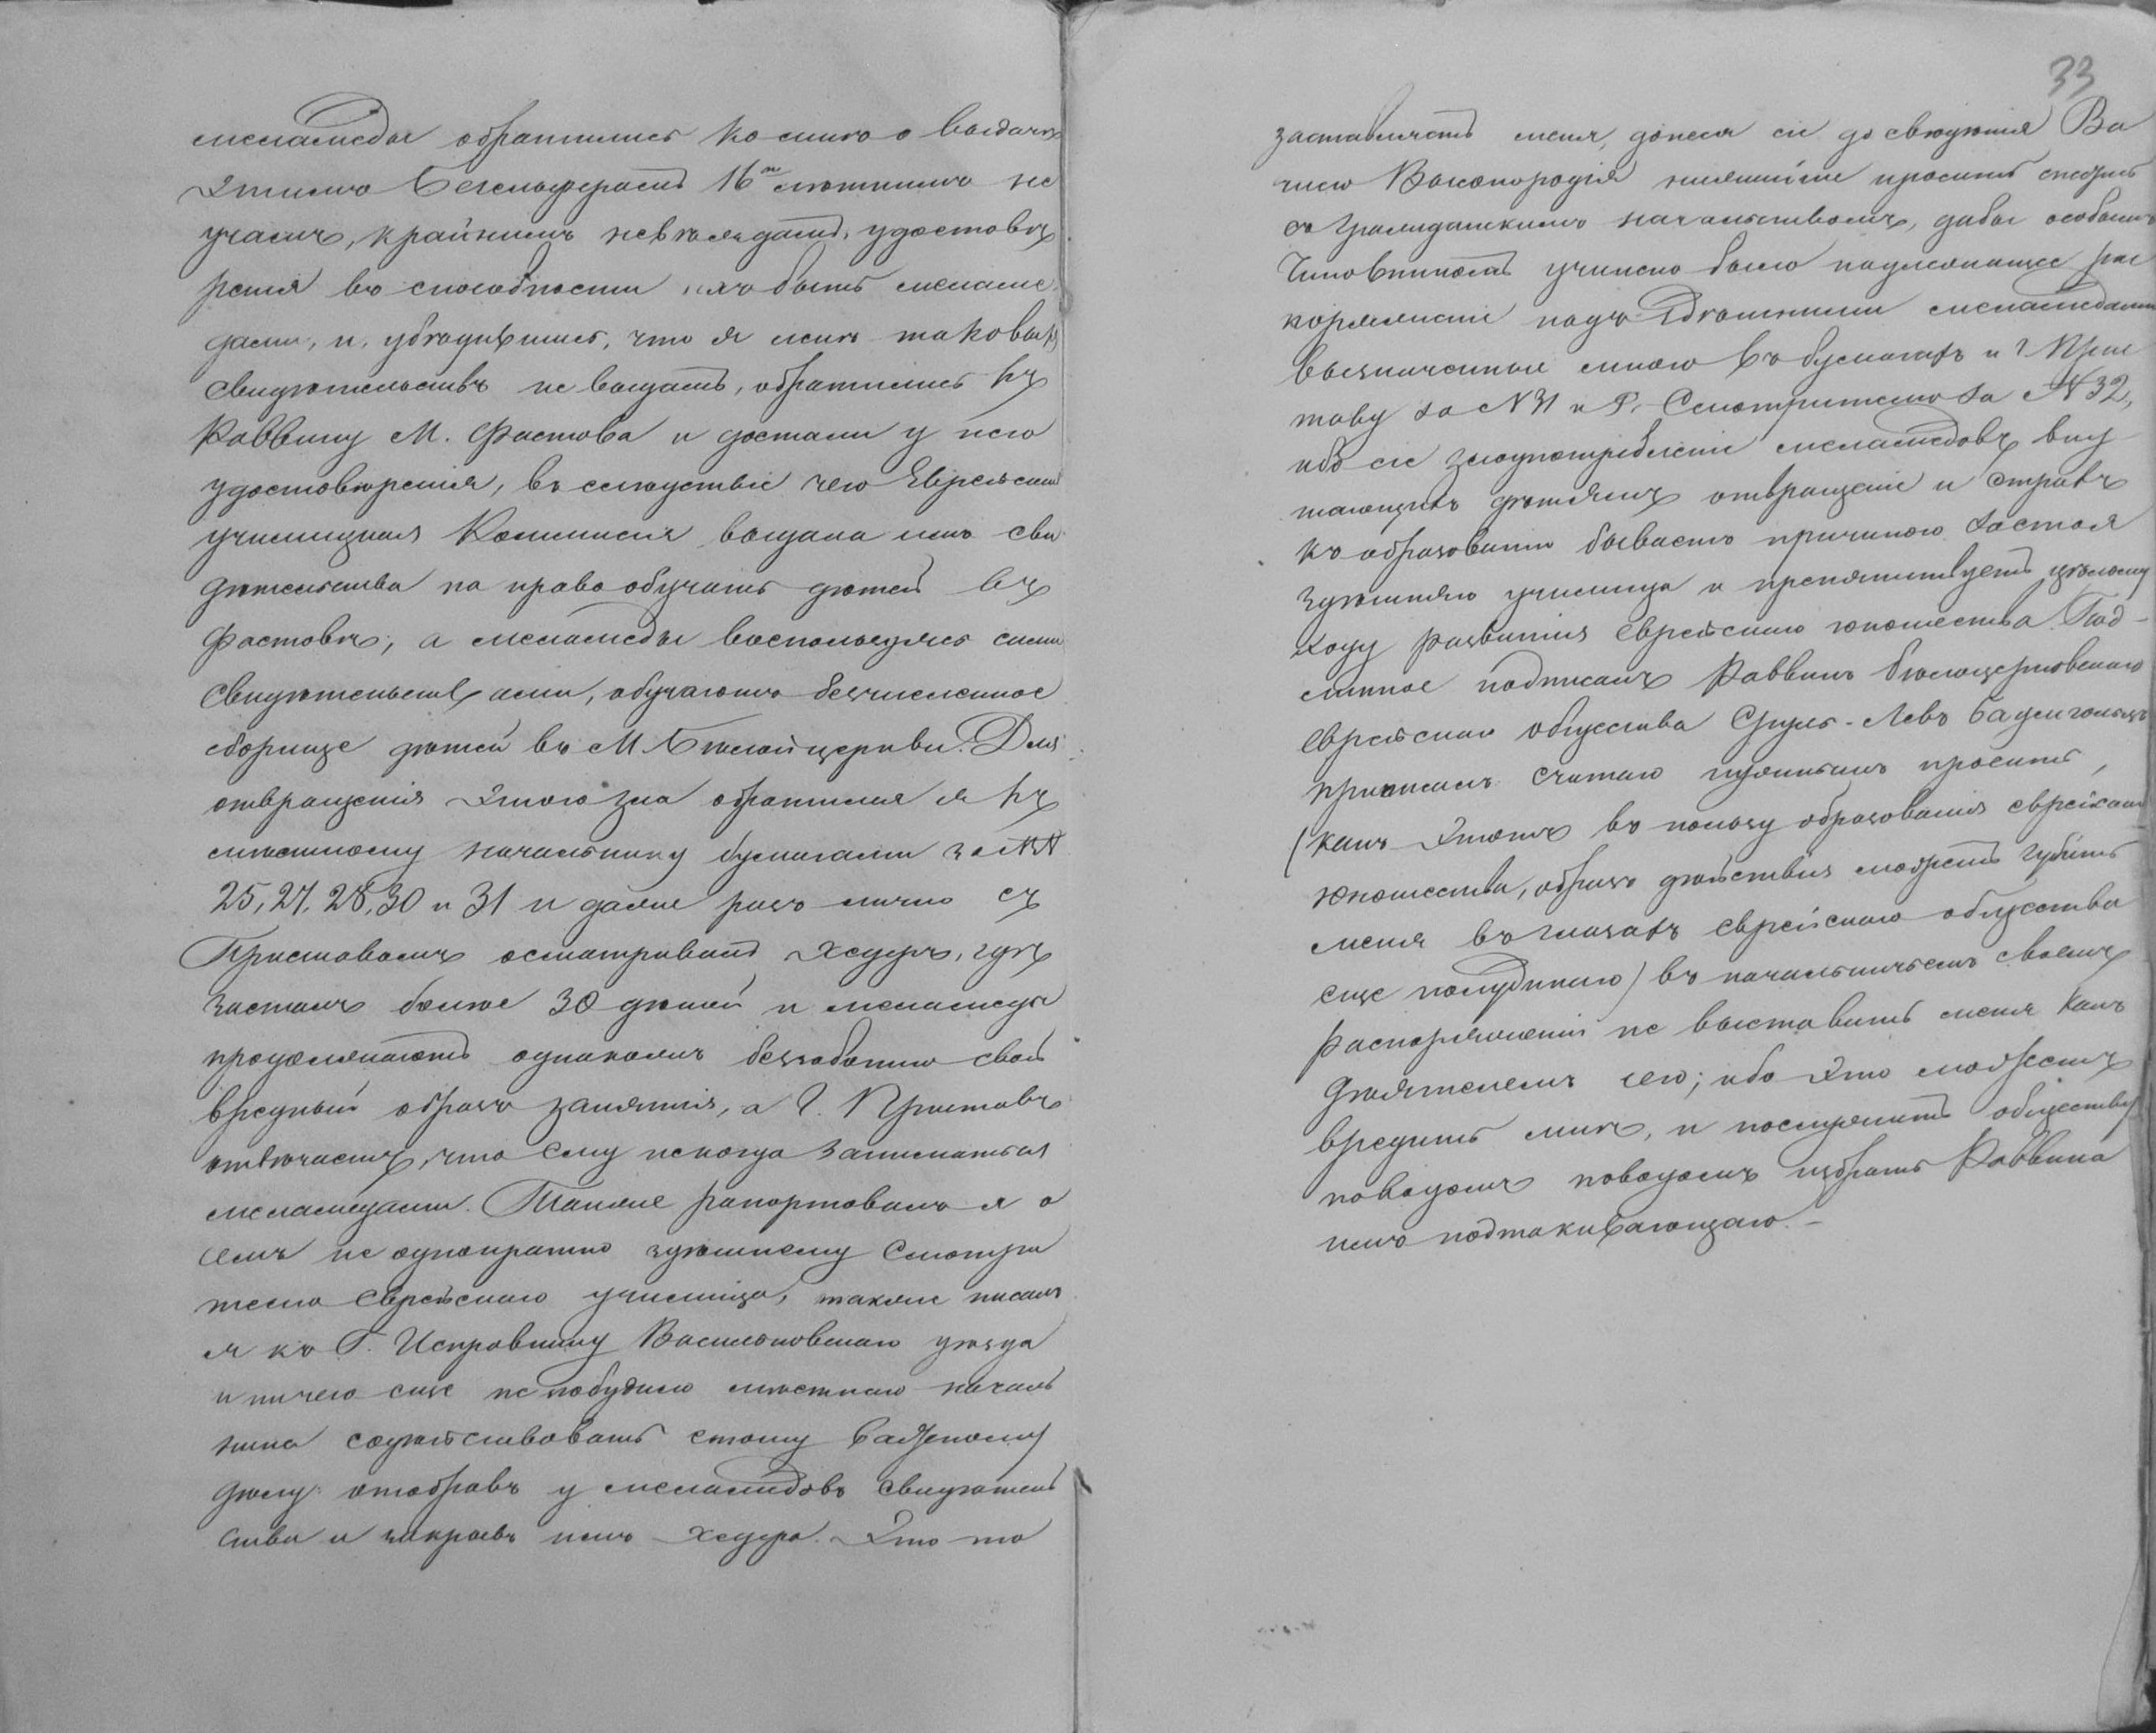 меламеды обратились ко мнѣ о выдачѣ
этимъ 16ти лѣтнимъ не
учамъ, крайнимъ невѣждамъ, удостовѣ
ренія въ способности ихъ быть меламе
дами, и, убѣдившись, что я имъ таковыхъ
свидѣтельствъ не выдамъ, обратились къ
Раввину М. Фастова и достали у него
удостовѣренія, въ слѣдствіе чего Еврейская
училищная Коммисія выдала имъ сви
дѣтельства на право обучать дѣтей въ
Фастовѣ; а меламеды воспользуясь сими
свидѣтельствами, обучаютъ безчисленное
сборище дѣтей въ М. Бѣлойцеркви. Для
отвращенія этого зла обратился я къ
мѣстному начальнику бумагами за №№
25, 27, 28, 30 и 31 и даже разъ лично съ
Приставомъ осматривалъ хедеръ, гдѣ
засталъ болѣе 30 дѣтей и меламеды
продолжаютъ однакожъ беззаботно свой
вредный образъ занятія, а Г. Приставъ
отвѣчаетъ, что ему некогда заниматься
меламедами. Также рапортовалъ я о
семъ не однократно здѣшнему Смотри
телю Еврейскаго училища, также писалъ
я къ Г. Исправнику Васильковскаго уѣзда
и ничего еще не побудило мѣстнаго началь
ника содѣйствовать столь важному
дѣлу отобравъ у меламедовъ свидѣтель
ства и закрывъ ихъ хедера. Это то
33
заставляетъ меня, донеся сіе до свѣдѣнія Ва
шего Высокородія нижайше просить снестись
съ Гражданскимъ начальствомъ, дабы особымъ
Чиновникомъ учинено было надлежащее рас
поряженіе надъ здѣшними меламедами
означенные мною въ бумагахъ и Г. Прис
таву за №31 и Г. Смотрителю за №32,
ибо сіе злоупотребленіе меламедовъ внуш
шающихъ дѣтямъ отвращеніе и страхъ
къ образованію бываетъ причиною застоя
здѣшняго училища и препятствуетъ цѣлому
ходу развитія еврейскаго юношества. Под-
линное подписалъ Раввинъ бѣлоцерковскаго
еврейскаго общества Сруль-Левъ
при семъ считаю нужнымъ просить,
(какъ этотъ въ пользу образованія еврейскаго
юношества, образъ дѣйствія можетъ губить
меня въ глазахъ еврейскаго общества
еще) въ начальническомъ своемъ
распоряженіи не выставить меня какъ
дѣятелемъ сего; ибо это можетъ
вредить мнѣ, и послужитъ обществу
поводомъ поводомъ избрать Раввина
имъ подтакивающаго. -